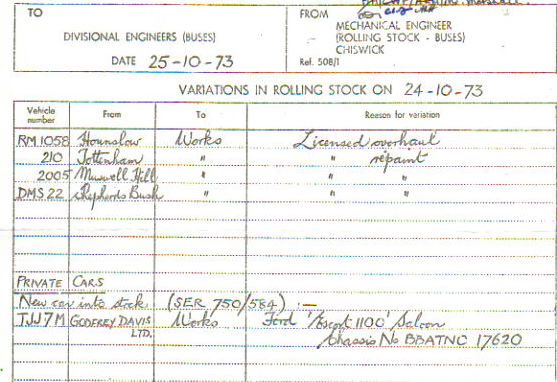 TO
DIVISIONAL ENGINEERS (BUSES)
DATE 25-10-73
FROM
MECHANICAL ENGINEER
(ROLLING STOCK - BUSES)
CHISWICK
Ref. 508/1
VARIATIONS IN ROLLING STOCK ON 24-10-73
Vehicle number From To Reason for variation
RM 1058 Hounslow Works Licensed overhaul
210 Tottenham " " repaint
2005 Muswell Hill " " "
DMS 22 Shepherds Bush " " "
PRIVATE CARS
New car into stock (SER 750/584) :—
TJJ 7M GODFREY DAVIS LTD. Works Ford 'Escort 1100' Saloon
Chassis No BBATNC 17620